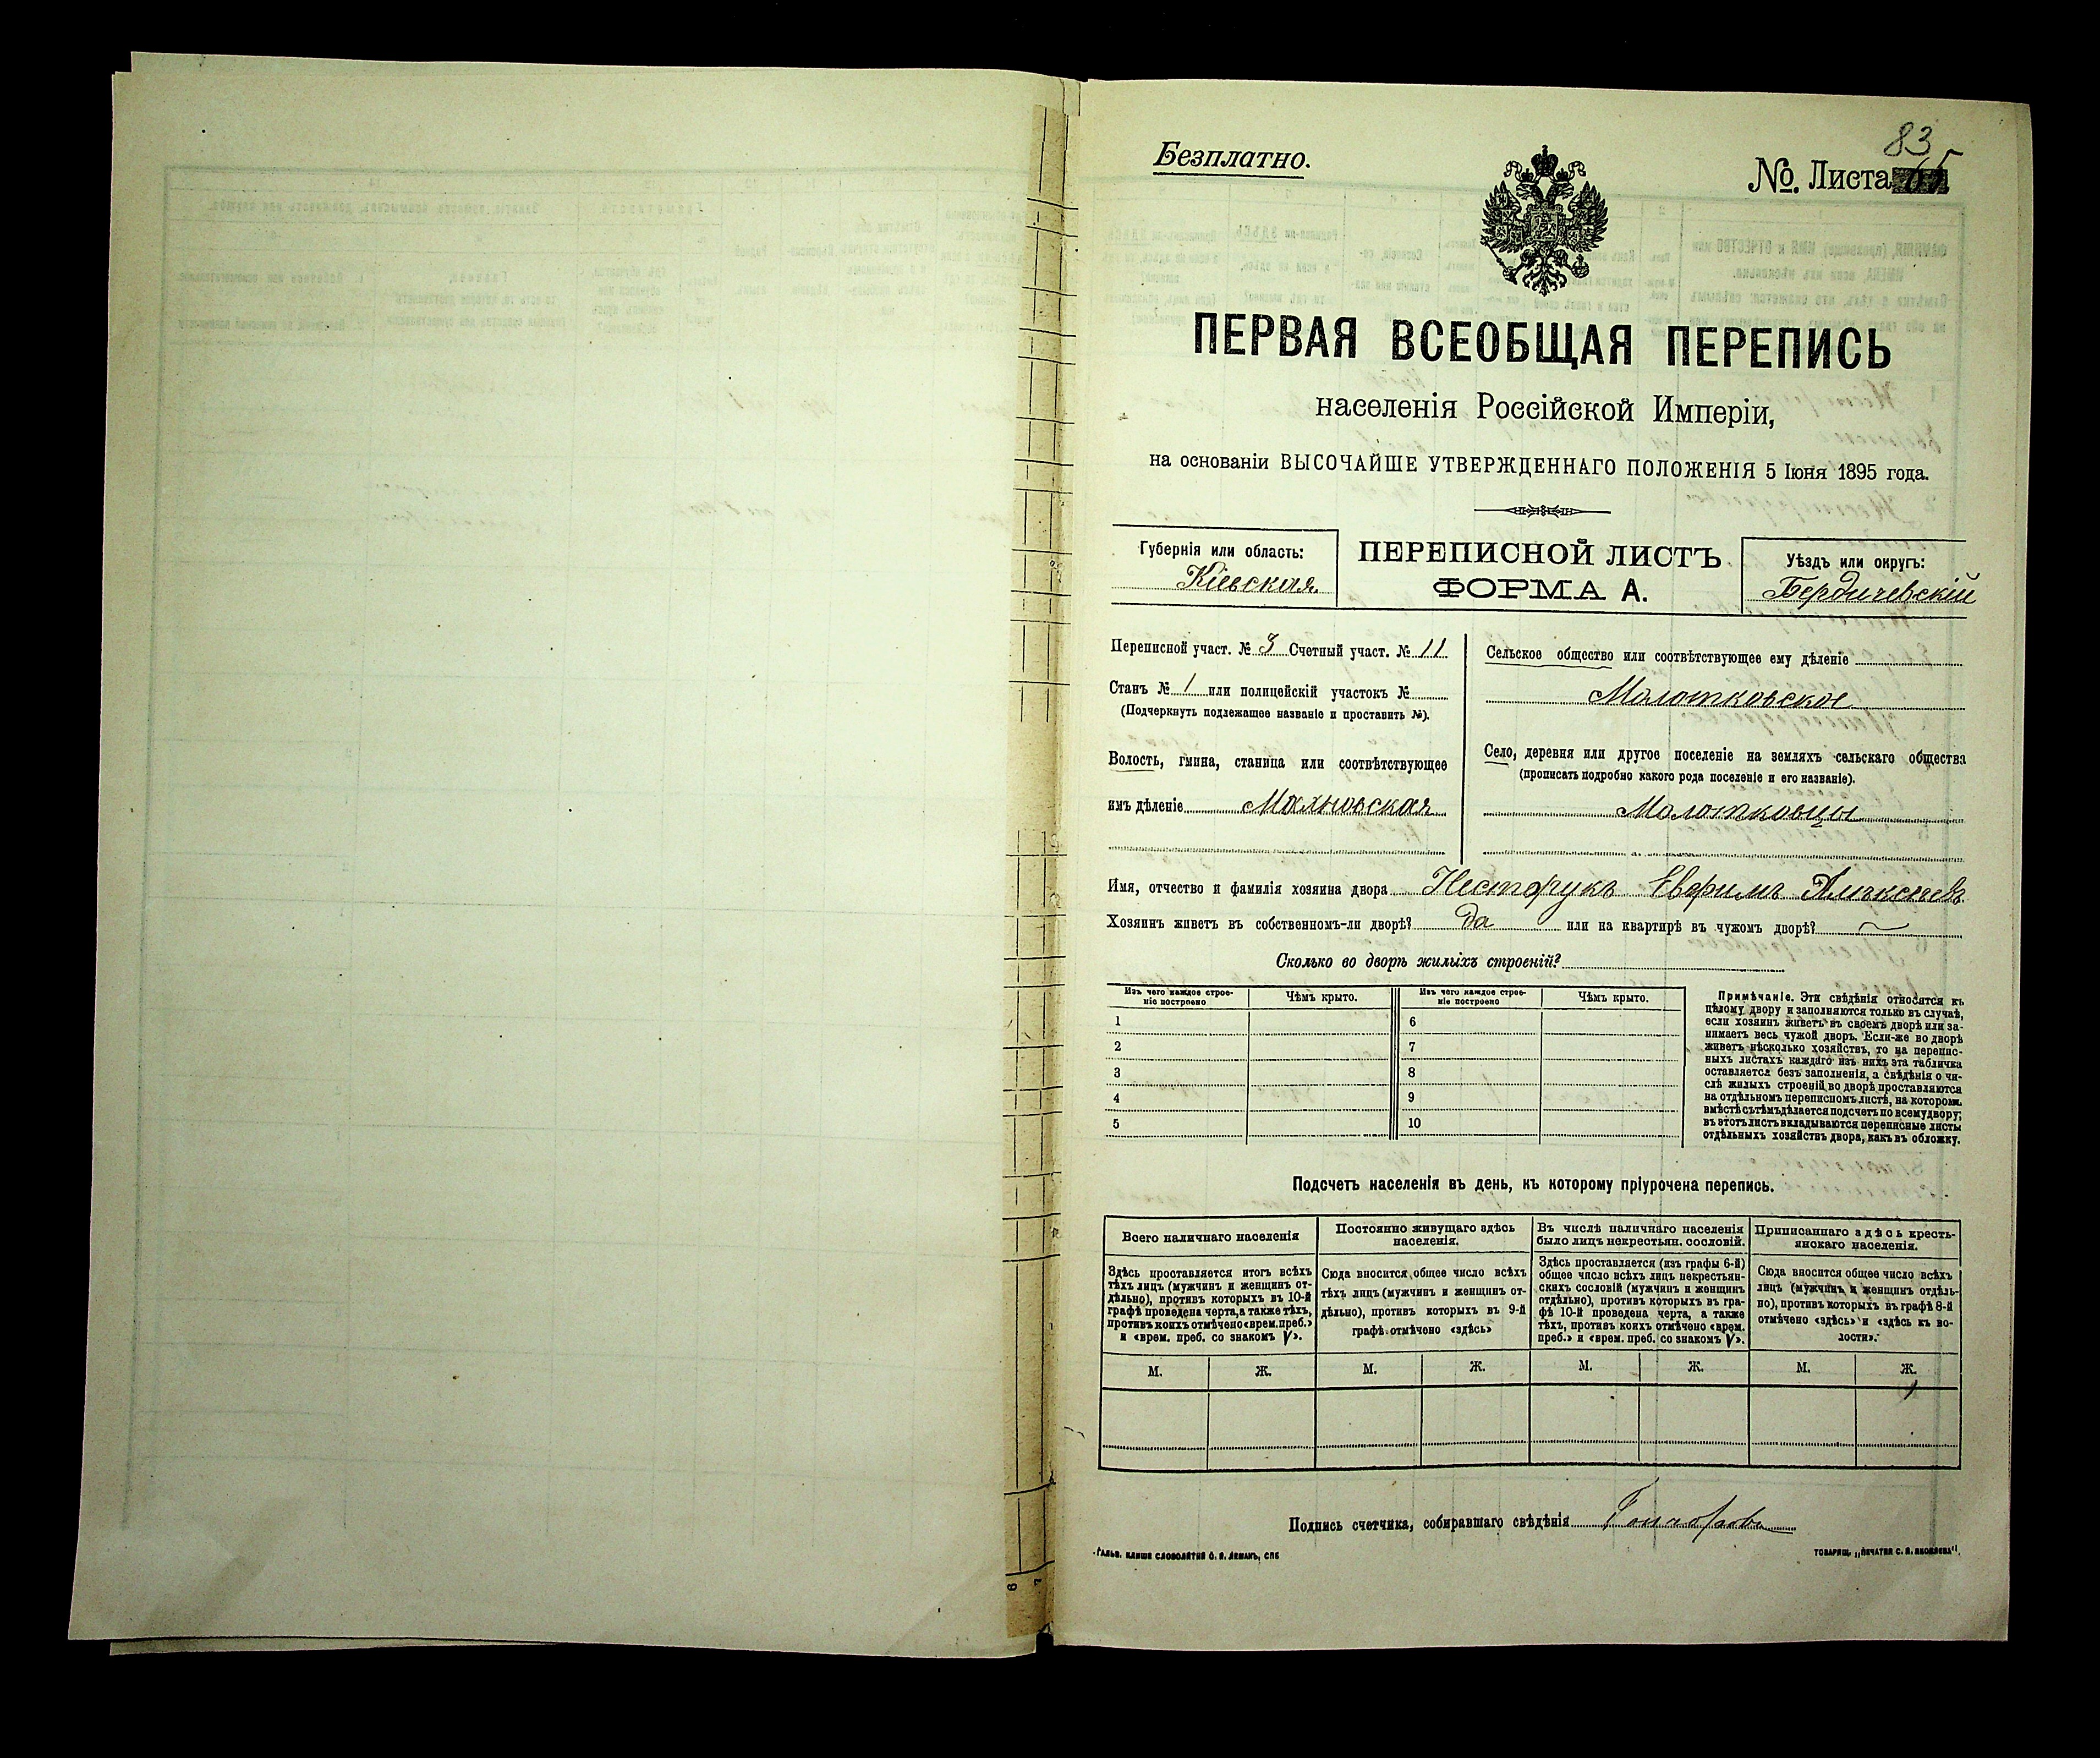 83
Безплатно.
№. Листа 65
ПЕРВАЯ ВСЕОБЩАЯ ПЕРЕПИСЬ
населенія Россійской Имперіи,
на основаніи ВЫСОЧАЙШЕ УТВЕРЖДЕННАГО ПОЛОЖЕНІЯ 5 Іюня 1895 года.
Губернія или область:
Кіевская.
ПЕРЕПИСНОЙ ЛИСТЪ
ФОРМА А.
Уѣздъ или округъ:
Бердичевскій
Переписной участ. № 3 Счетный участ. № 11
Станъ № 1 или полицейскій участокъ №
(Подчеркнуть подлежащее названіе и проставить №).
Волость, гмина, станица или соотвѣтствующее
имъ дѣленіе Махновская
Сельское общество или соотвѣтствующее ему дѣленіе
Молотковское
Село, деревня или другое поселеніе на земляхъ сельскаго общества
(прописать подробно какого рода поселеніе и его названіе).
Молотковцы
Имя, отчество и фамилія хозяина двора Несторукъ Евфимъ Алексѣевъ
Хозяинъ живетъ въ собственномъ-ли дворѣ? да или на квартирѣ въ чужомъ дворѣ?
Сколько во дворѣ жилыхъ строеній?
Изъ чего каждое строе-
ніе построено
Чѣмъ крыто.
Изъ чего каждое строе-
ніе построено
Чѣмъ крыто.
1 6
2 7
3 8
4 9
5 10
Примѣчаніе. Эти свѣдѣнія относятся къ
цѣлому двору и заполняются только въ случаѣ,
если хозяинъ живетъ въ своемъ дворѣ или за-
нимаетъ весь чужой дворъ. Если-же во дворѣ
живетъ нѣсколько хозяйствъ, то на перепис-
ныхъ листахъ каждаго изъ нихъ эта табличка
оставляется безъ заполненія, а свѣдѣнія о чи-
слѣ жилыхъ строеній во дворѣ проставляются
на отдѣльномъ переписномъ листѣ, на которомъ
вмѣстѣ съ тѣмъ дѣлается подсчетъ по всему двору;
въ этотъ листъ вкладываются переписные листы
отдѣльныхъ хозяйствъ двора, какъ въ обложку.
Подсчетъ населенія въ день, къ которому пріурочена перепись.
Всего наличнаго населенія
Здѣсь проставляется итогъ всѣхъ
тѣхъ лицъ (мужчинъ и женщинъ от-
дѣльно), противъ которыхъ въ 10-й
графѣ проведена черта, а также тѣхъ,
противъ коихъ отмѣчено «врем. преб.»
и «врем. преб. со знакомъ V».
Постоянно живущаго здѣсь
населенія.
Сюда вносится общее число всѣхъ
тѣхъ лицъ (мужчинъ и женщинъ от-
дѣльно), противъ которыхъ въ 9-й
графѣ отмѣчено «здѣсь»
Въ числѣ наличнаго населенія
было лицъ некрестьян. сословій.
Здѣсь проставляется (изъ графы 6-й)
общее число всѣхъ лицъ некрестьян-
скихъ сословій (мужчинъ и женщинъ
отдѣльно), противъ которыхъ въ гра-
фѣ 10-й проведена черта, а также
тѣхъ, противъ коихъ отмѣчено «врем.
преб.» и «врем. преб. со знакомъ V».
Приписаннаго здѣсь кресть-
янскаго населенія.
Сюда вносится общее число всѣхъ
лицъ (мужчинъ и женщинъ отдѣль-
но), противъ которыхъ въ графѣ 8-й
отмѣчено «здѣсь» и «здѣсь къ во-
лости».
М. Ж. М. Ж. М. Ж. М. Ж.
Подпись счетчика, собиравшаго свѣдѣнія
ГАЛЬВ. КЛИШЕ СЛОВОЛИТНИ О. И. ЛЕМАНЪ, СПБ
ТОВАРИЩ. „ПЕЧАТНЯ С. П. ЯКОВЛЕВА"